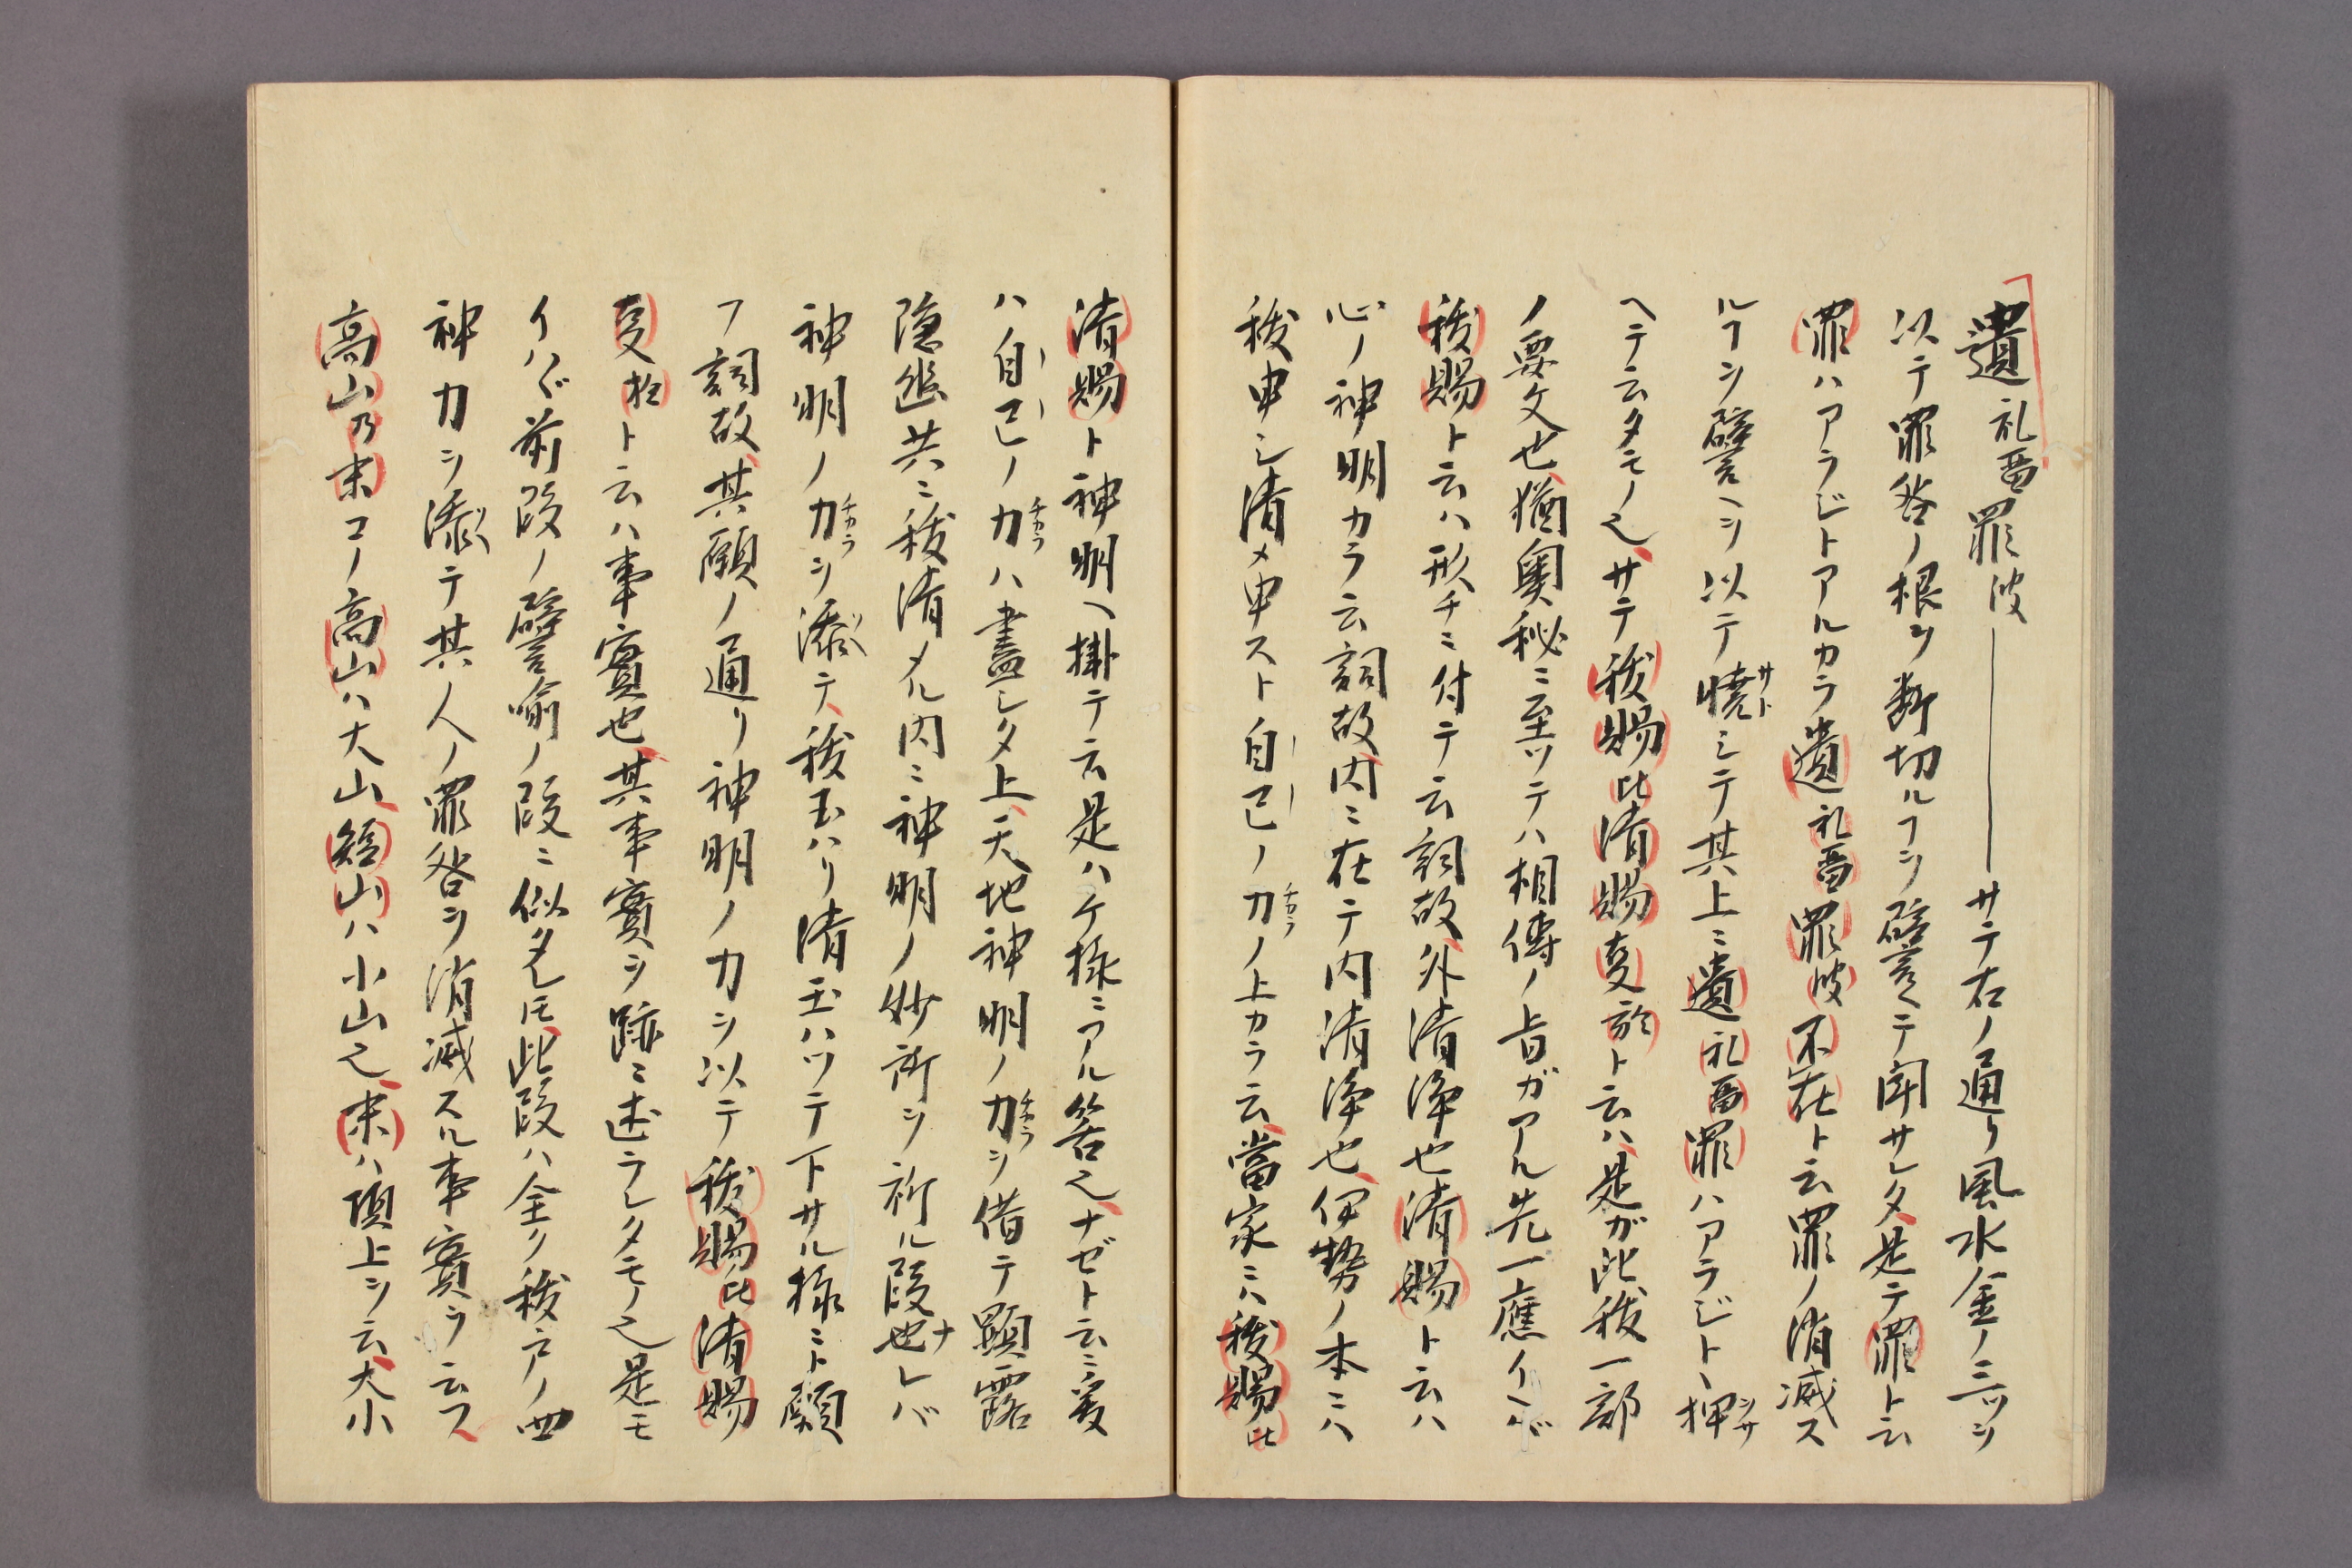 遺礼畱罪波――サテ右ノ通リ風水金ノ三ツヲ
以テ罪咎ノ根ヲ断切ルヿヲ譬ヘテ聞サレタ是テ罪ト云
罪ハアラジトアルカラ遺礼畱罪波不在ト云罪ノ消滅ス
ルヿヲ譬ヘヲ以テ曉シテ其上ニ遺礼畱罪ハアラジト、押
ヘテ云タモノ也サテ祓賜比清賜亊於ト云ハ是ガ此祓一部
ノ要文也猶奥秘ニ至ツテハ相傳ノ旨ガアル先一應イヘバ
祓賜ト云ハ形チニ付テ云詞故外清浄也清賜ト云ハ
心ノ神明カラ云詞故内ニ在テ内清浄也伊勢ノ本ニハ
祓申シ清メ申スト自己ノ力ノ上カラ云當家ニハ祓賜比
清賜ト神明ヘ掛テ云是ハケ様ニアル筈也ナゼト云ニ爰
ハ自己ノ力ハ盡シタ上天地神明ノ力ヲ借テ顕露
隠幽共ニ祓清メル内ニ神明ノ妙所ヲ祈ル段也レバ
神明ノ力ヲ添テ祓玉ハリ清玉ハツテ下サル様ニト願
フ詞故其願ノ通リ神明ノ力ヲ以テ祓賜比清賜
亊於ト云ハ事實也其事實ヲ跡ニ述ラレタモノ也是モ
イハヾ前段ノ譬喩ノ段ニ似タレ𪜈此段ハ全ク祓戸ノ四
神力ヲ添テ其人ノ罪咎ヲ消滅スル事實ヲ云フ
高山乃末コノ高山ハ大山短山ハ小山也末ハ頂上ヲ云大小